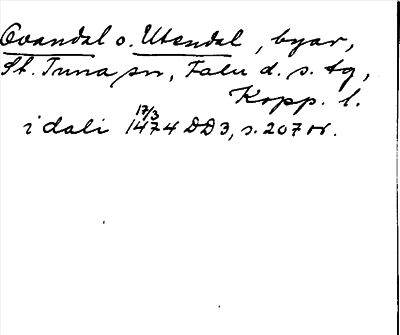 Ovandal o. Utendal, byar,
St. Tuna sn, Falu d. s. tg,
Kopp. l.
i dali 17/3 1474 DD3, s. 207 or.